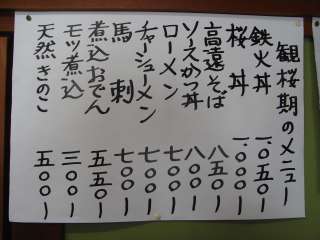 観桜期のメニュー
鉄火丼 一、〇五〇ー
桜丼 一、〇〇〇ー
高遠そば 八五〇ー
ソースかつ丼 八〇〇ー
ローメン 七〇〇ー
チャーシューメン 七〇〇ー
馬刺 七〇〇ー
煮込おでん 五五〇ー
モツ煮込 三〇〇ー
天然きのこ 五〇〇ー